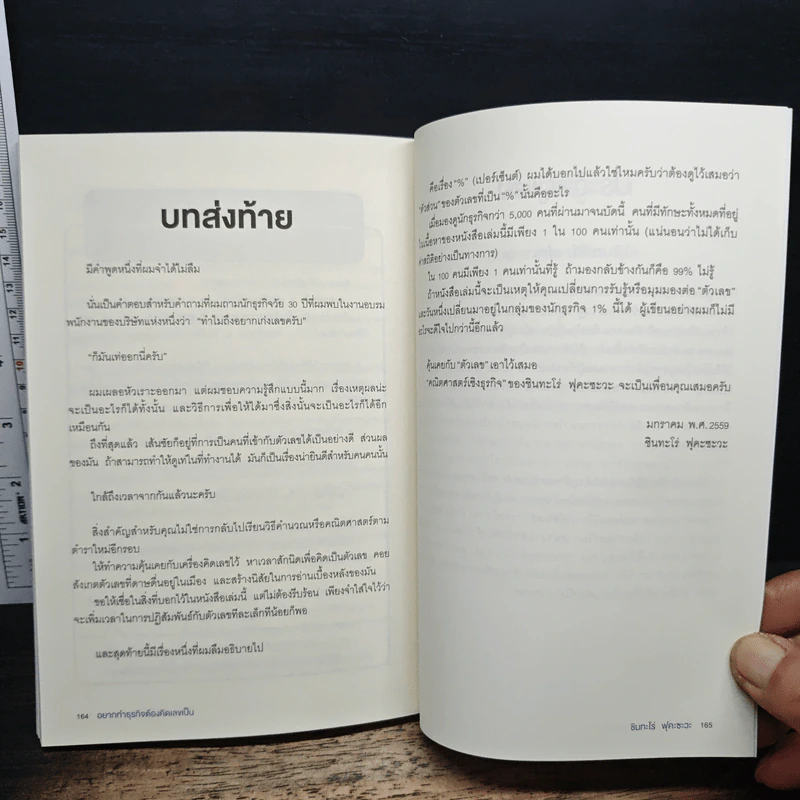 บทส่งท้าย
มีคำพูดหนึ่งที่ผมจำได้ไม่ลืม
นั่นเป็นคำตอบสำหรับคำถามที่ผมถามนักธุรกิจวัย 30 ปีที่ผมพบในงานอบรม
พนักงานของบริษัทแห่งหนึ่งว่า "ทำไมถึงอยากเก่งเลขครับ"
"ก็มันเท่ออกนี่ครับ"
ผมเผลอหัวเราะออกมา แต่ผมชอบความรู้สึกแบบนี้มาก เรื่องเหตุผลน่ะ
จะเป็นอะไรก็ได้ทั้งนั้น และวิธีการเพื่อให้ได้มาซึ่งสิ่งนั้นจะเป็นอะไรก็ได้อีก
เหมือนกัน
ถึงที่สุดแล้ว เส้นชัยก็อยู่ที่การเป็นคนที่เข้ากับตัวเลขได้เป็นอย่างดี ส่วนผล
ของมัน ถ้าสามารถทำให้ดูเท่ในที่ทำงานได้ มันก็เป็นเรื่องน่ายินดีสำหรับคนคนนั้น
ใกล้ถึงเวลาจากกันแล้วนะครับ
สิ่งสำคัญสำหรับคุณไม่ใช่การกลับไปเรียนวิธีคำนวณหรือคณิตศาสตร์ตาม
ตำราใหม่อีกรอบ
ให้ทำความคุ้นเคยกับเครื่องคิดเลขไว้ หาเวลาสักนิดเพื่อคิดเป็นตัวเลข คอย
สังเกตตัวเลขที่ดาษดื่นอยู่ในเมือง และสร้างนิสัยในการอ่านเบื้องหลังของมัน
ขอให้เชื่อในสิ่งที่บอกไว้ในหนังสือเล่มนี้ แต่ไม่ต้องรีบร้อน เพียงจำใส่ใจไว้ว่า
จะเพิ่มเวลาในการปฏิสัมพันธ์กับตัวเลขทีละเล็กทีน้อยก็พอ
และสุดท้ายนี้มีเรื่องหนึ่งที่ผมลืมอธิบายไป
164 อยากทำธุรกิจต้องคิดเลขเป็น
คือเรื่อง "%" (เปอร์เซ็นต์) ผมได้บอกไปแล้วใช่ไหมครับว่าต้องดูไว้เสมอว่า
"ตัวส่วน" ของตัวเลขที่เป็น "%" นั้นคืออะไร
เมื่อมองดูนักธุรกิจกว่า 5,000 คนที่ผ่านมาจนบัดนี้ คนที่มีทักษะทั้งหมดที่อยู่
ในเนื้อหาของหนังสือเล่มนี้มีเพียง 1 ใน 100 คนเท่านั้น (แน่นอนว่าไม่ได้เก็บ
ค่าสถิติอย่างเป็นทางการ)
ใน 100 คนมีเพียง 1 คนเท่านั้นที่รู้ ถ้ามองกลับข้างกันก็คือ 99% ไม่รู้
ถ้าหนังสือเล่มนี้จะเป็นเหตุให้คุณเปลี่ยนการรับรู้หรือมุมมองต่อ "ตัวเลข"
และวันหนึ่งเปลี่ยนมาอยู่ในกลุ่มของนักธุรกิจ 1% นี้ได้ ผู้เขียนอย่างผมก็ไม่มี
อะไรจะดีใจไปกว่านี้อีกแล้ว
คุ้นเคยกับ "ตัวเลข" เอาไว้เสมอ
"คณิตศาสตร์เชิงธุรกิจ" ของชินทะโร่ ฟุคะซะวะ จะเป็นเพื่อนคุณเสมอครับ
มกราคม พ.ศ. 2559
ชินทะโร่ ฟุคะซะวะ
ชินทะโร่ ฟุคะซะวะ 165